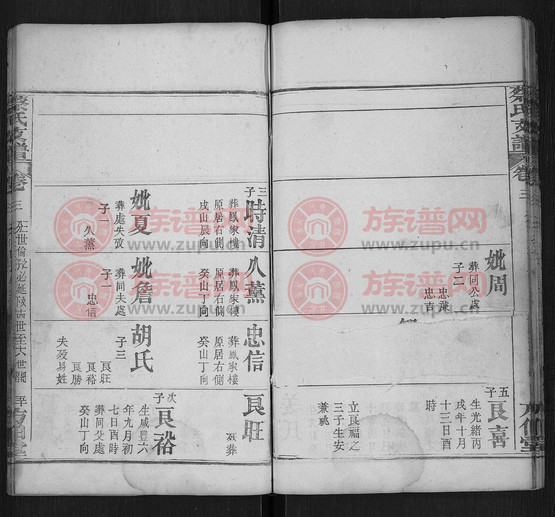 蔡氏支譜
卷三
妣周
葬同公處
子二
忠謙
忠吉
五子
良喜
生光緒丙
戌年十月
十三日酉
時
立良福之
三子生安
兼祧
三子
時清
葬鳳家樓
原居右側
戌山辰向
妣夏
葬處失攷
子一
久薰
八薰
葬鳳家樓
原居右側
癸山丁向
妣詹
葬同夫處
子一
忠信
忠信
葬鳳家樓
原居右側
癸山丁向
胡氏
子三
良旺
良裕
良勝
夫歿易姓
良旺
歿葬
次子
良裕
生咸豐六
年九月初
七日酉時
葬同父處
癸山丁向
蔡氏支譜
卷三
族谱网
www.zupu.cn